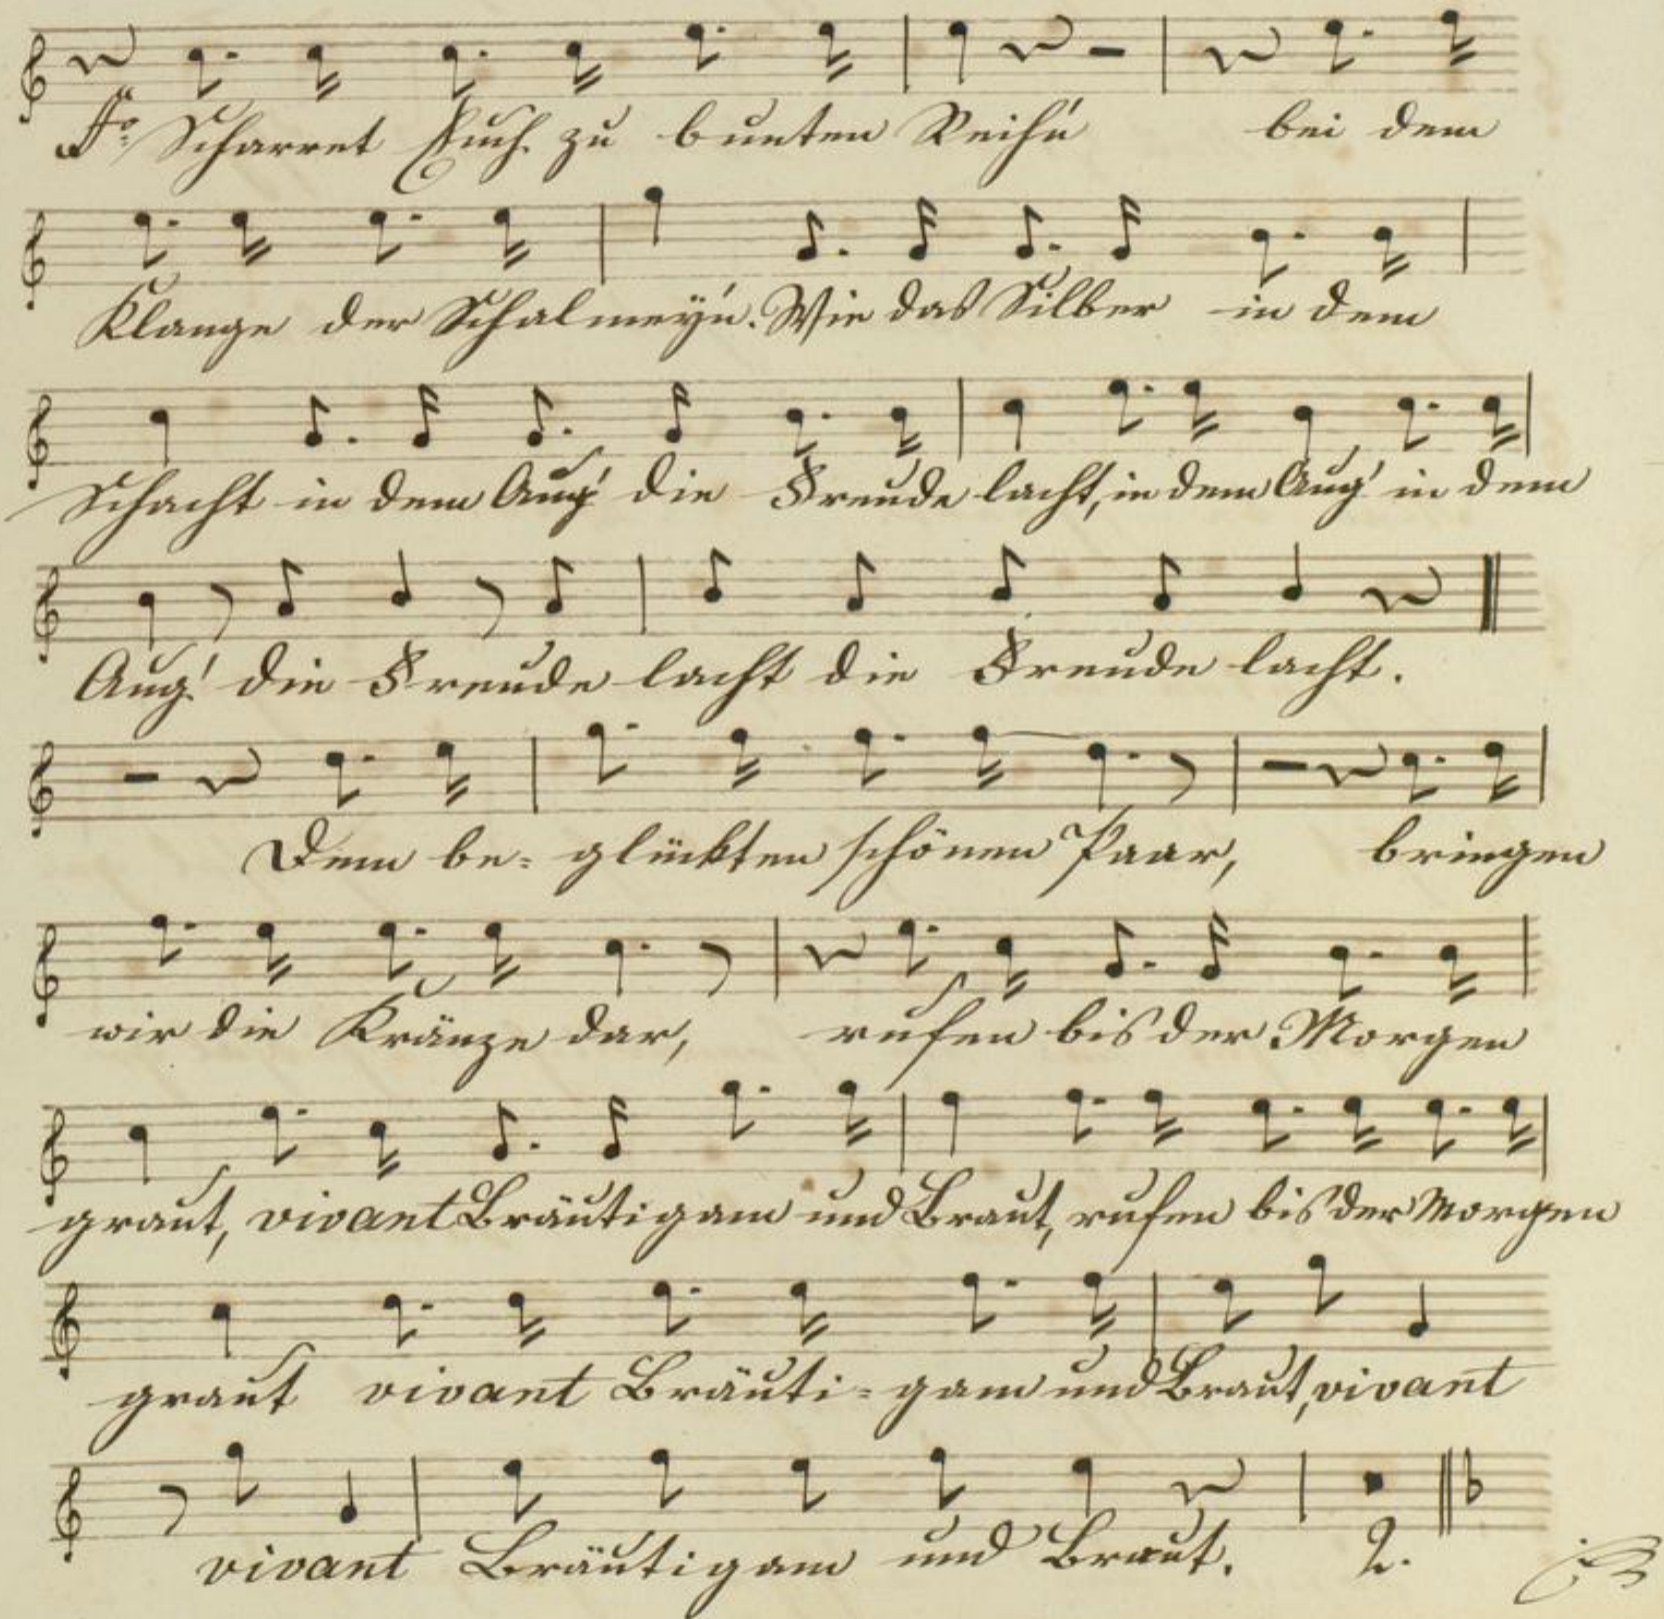 Fo: Scharret Euch zu bunten Reih'n bei dem
Klange der Schalmeyn'. Wie das Silber in dem
Schacht in dem Aug' die Freude lacht, in dem Aug' in dem
Aug' die Freude lacht die Freude lacht.
Dem be= glückten schönen Paar, bringen
wir die Kränze dar, rufen bis der Morgen
graut, vivant Bräutigam und Braut, rufen bis der Morgen
graut vivant Bräuti= gam und Braut, vivant
vivant Bräutigam und Braut. 2.